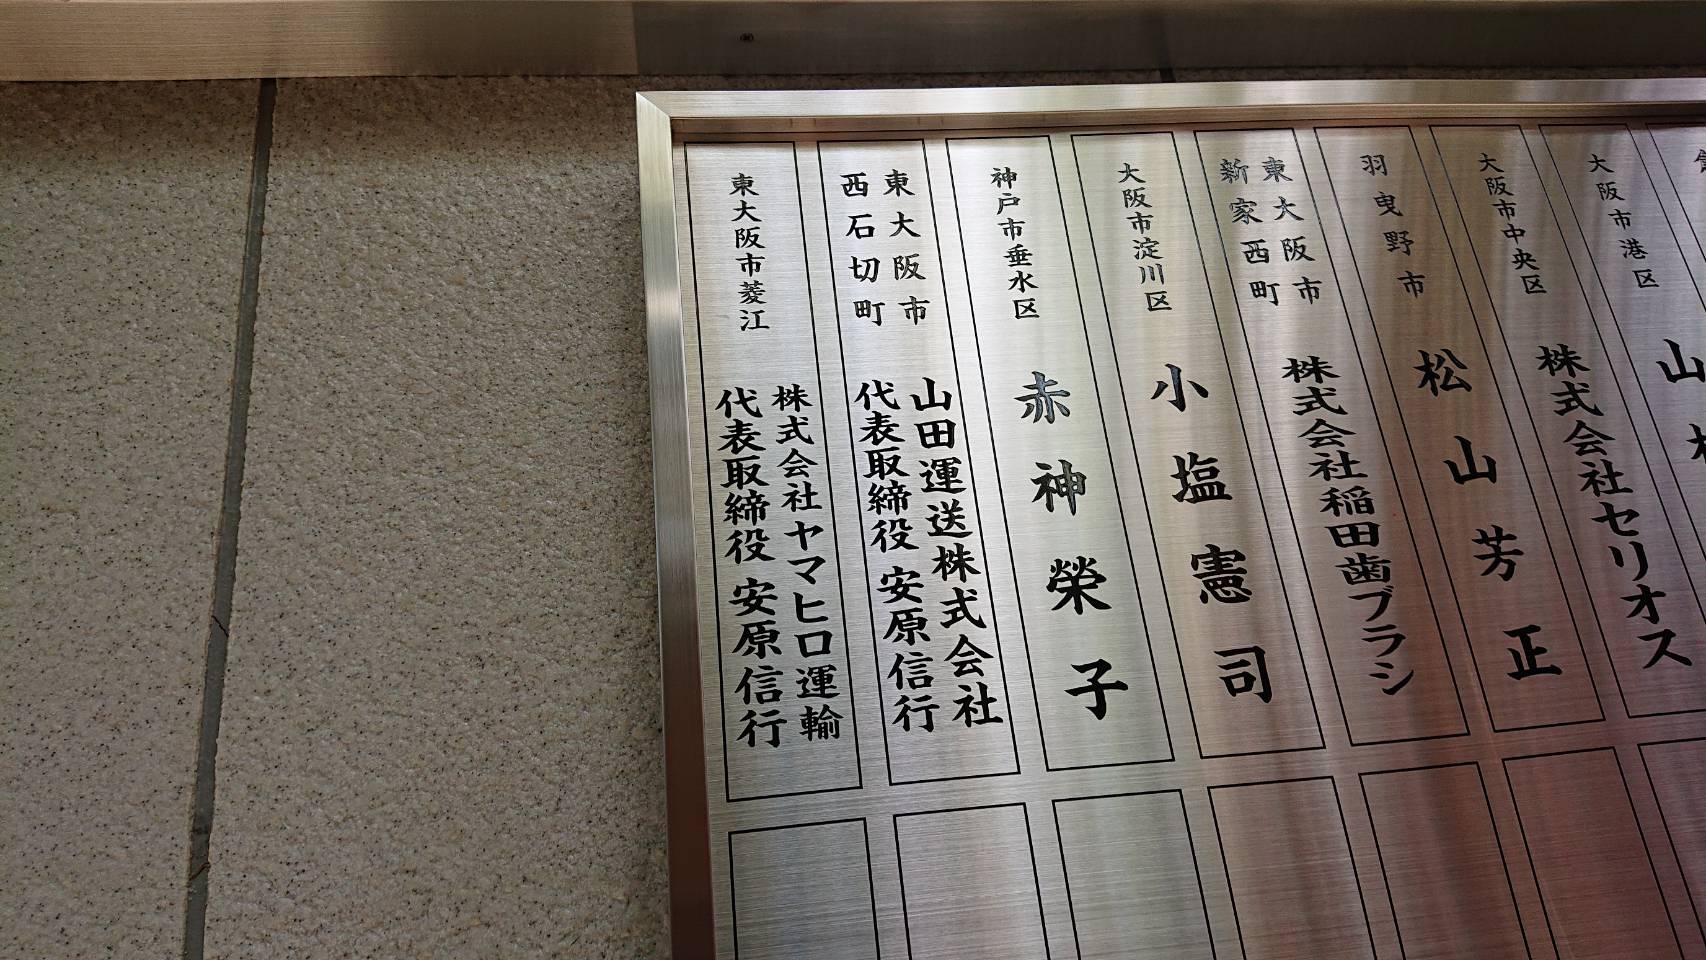 大阪市港区
株式会社セリオス
大阪市中央区
松山芳正
羽曳野市
株式会社稲田歯ブラシ
東大阪市
新家西町
小塩憲司
大阪市淀川区
赤神榮子
神戸市垂水区
山田運送株式会社
代表取締役 安原信行
東大阪市
西石切町
株式会社ヤマヒロ運輸
代表取締役 安原信行
東大阪市菱江